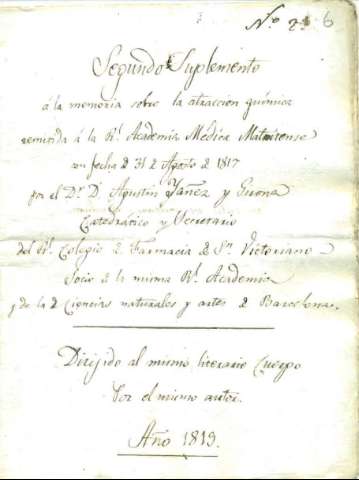 N.º 23 6
Segundo Suplemento
á la memoria sobre la atraccion química
remitida á la Rl. Academia Médica Matritense
con fecha 2 31 2 Agosto 2 1817
por el Dr. D. Agustin Yañez y Girona
Catedrático y Secretario
del Rl. Colegio 2 Farmacia 2 Sn. Victoriano
Socio 2 la misma Rl. Academia
y de la 2 Ciencias naturales y artes 2 Barcelona.
Dirijido al mismo literario Cuerpo
Por el mismo autor.
Año 1819.